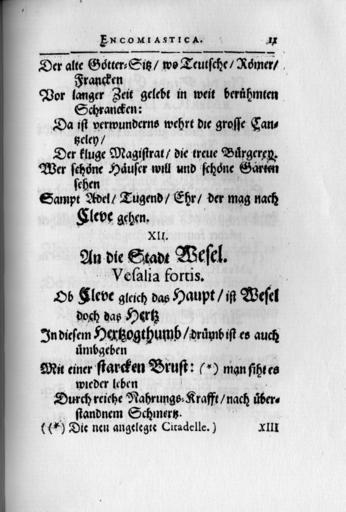 ENCOMIASTICA. 11
Der alte Götter-Sitz/ wo Teutsche/ Römer/
Francken
Vor langer Zeit gelebt in weit berühmten
Schrancken:
Da ist verwunderns wehrt die grosse Can-
tzeley/
Der kluge Magistrat/ die treue Bürgerey.
Wer schöne Häuser will und schöne Gärten
sehen
Sampt Adel/ Tugend/ Ehr/ der mag nach
Cleve gehen.
XII.
An die Stadt Wesel.
Vesalia fortis.
Ob Cleve gleich das Haupt/ ist Wesel
doch das Hertz
In diesem Hertzogthumb/ drümb ist es auch
ümbgeben
Mit einer starcken Brust: (*) man siht es
wieder leben
Durch reiche Nahrungs-Krafft/ nach über-
standnem Schmertz.
((*) Die neu angelegte Citadelle.) XIII